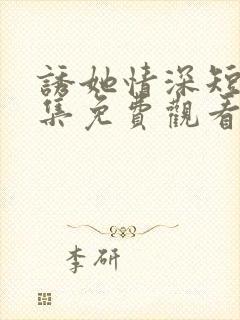 誘她情深短
集免費觀看
李研